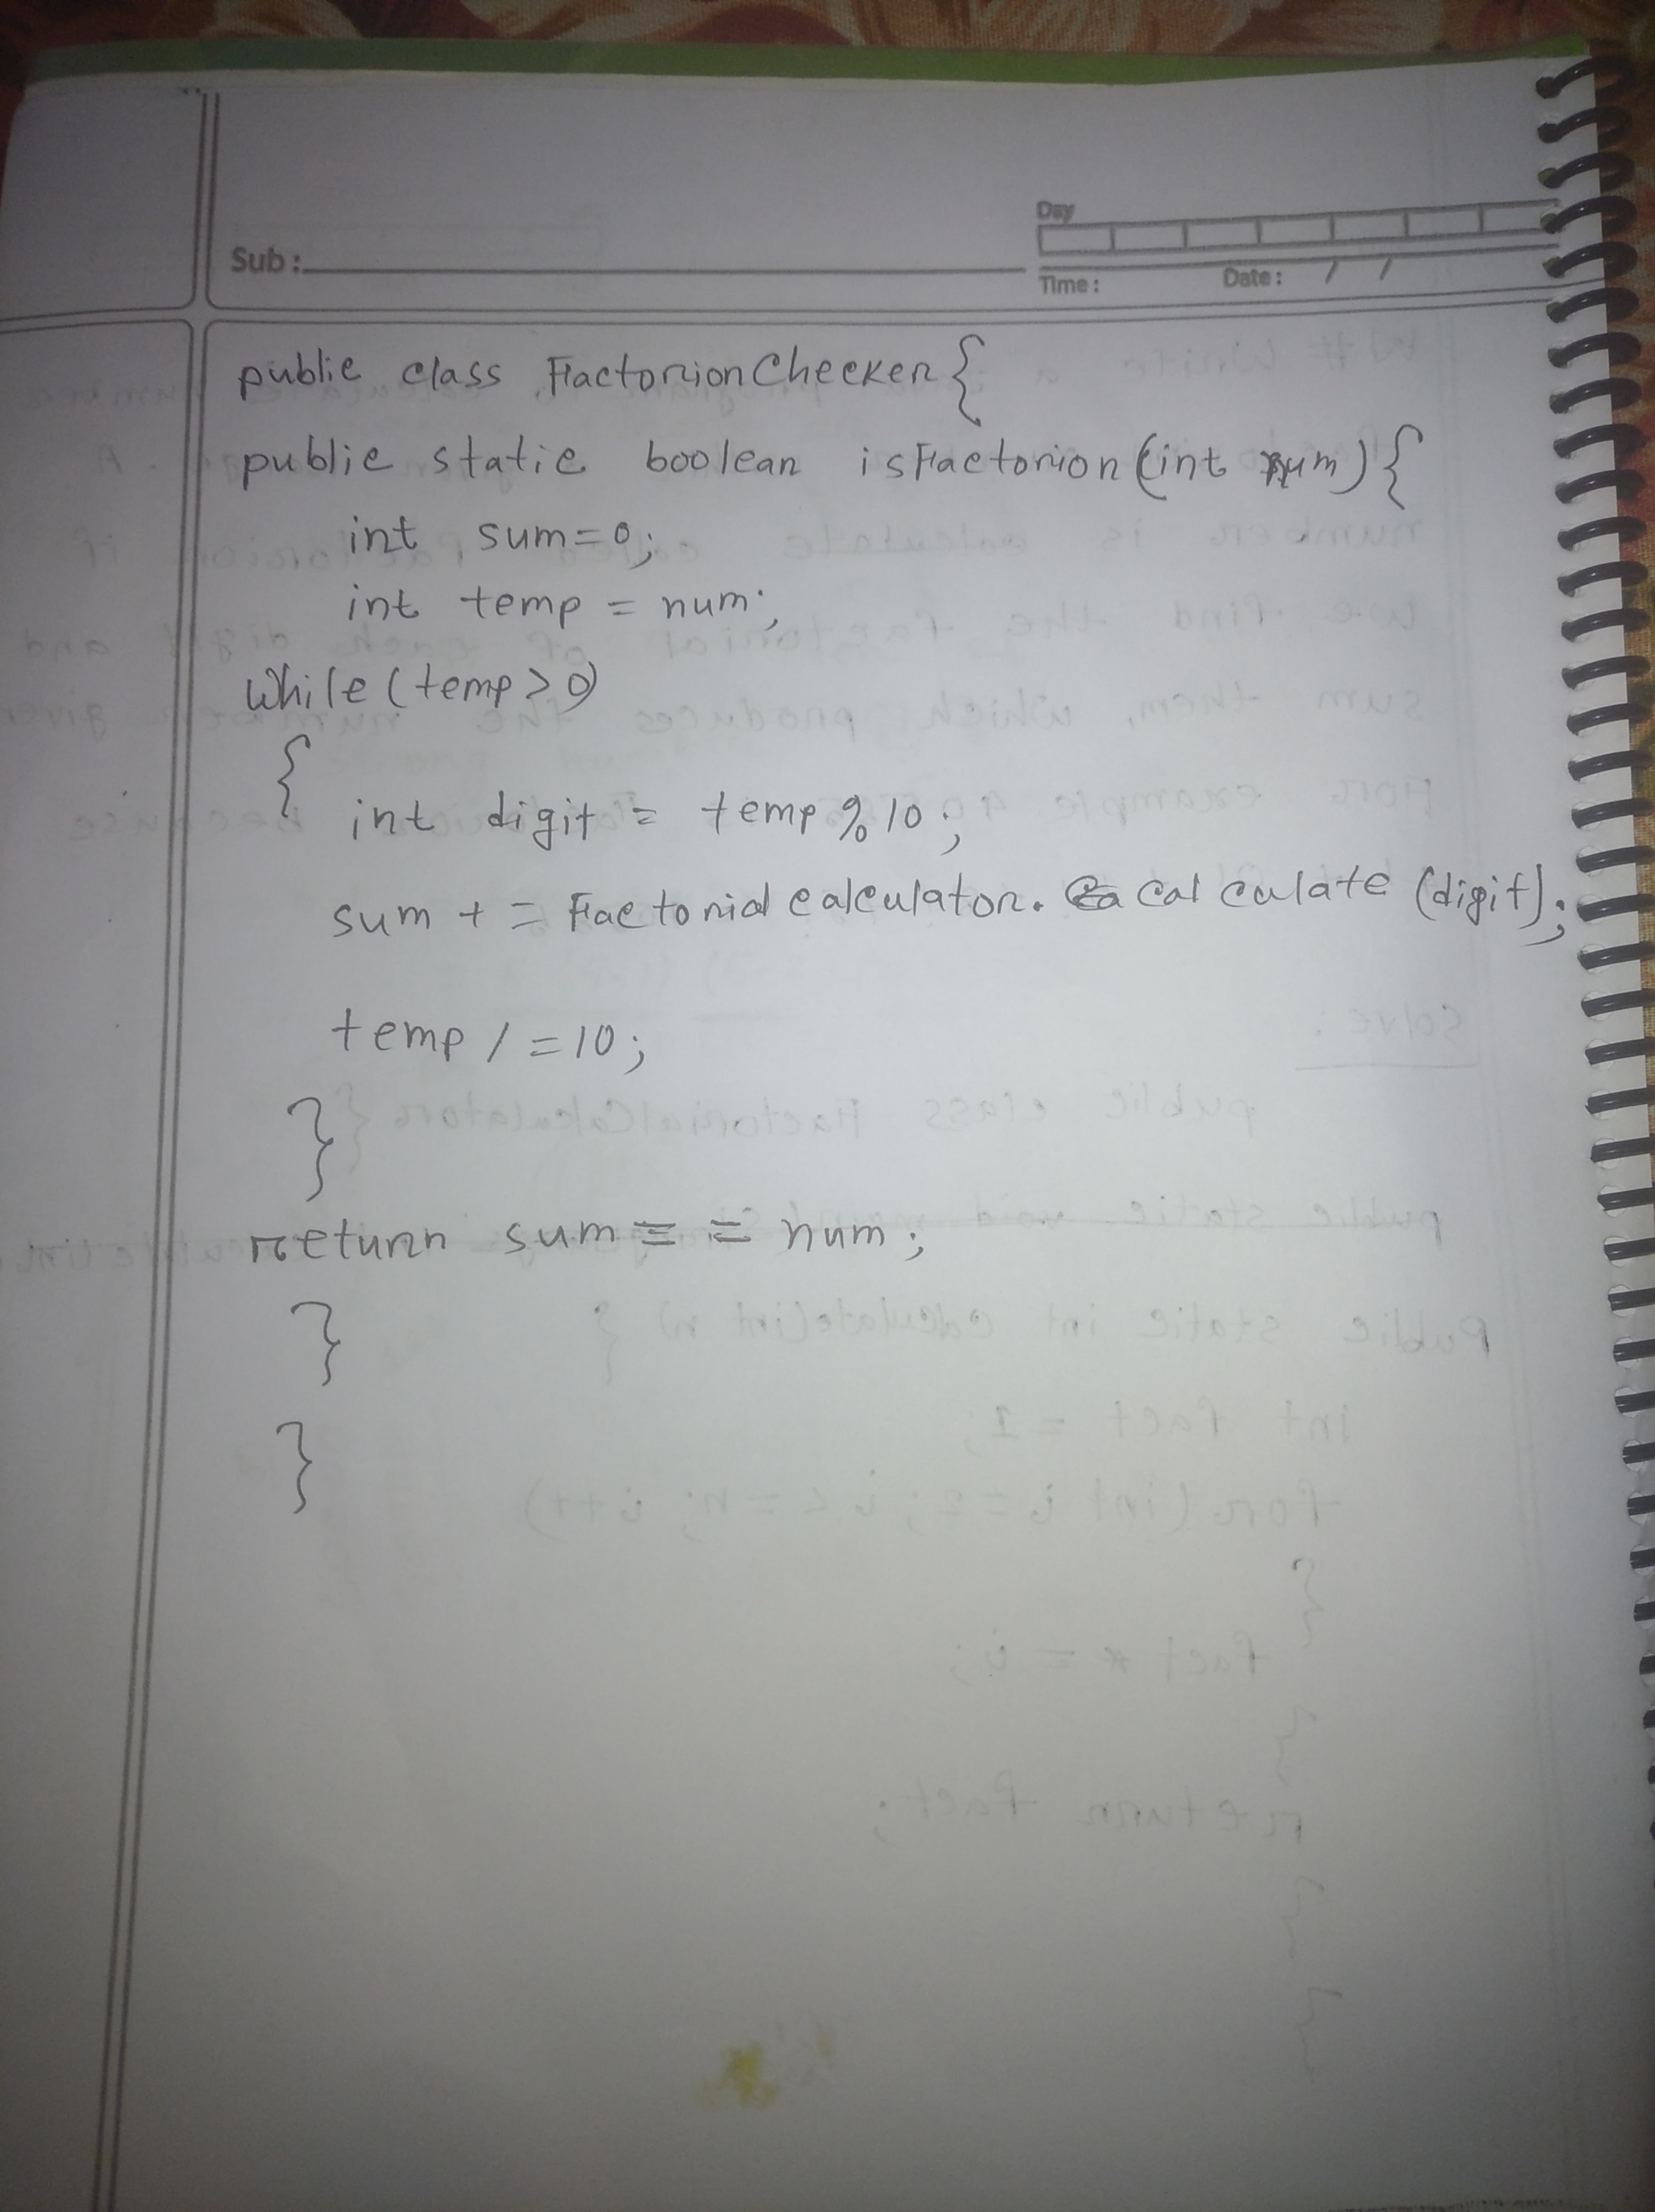 Day
Sub :
Time :
Date : / /
public class FactorionChecker{
public static boolean isFactorion(int num){
int sum=0;
int temp = num;
While(temp>0)
{
int digit = temp%10;
sum + = Factorial calculator. calculate (digit);
temp / =10;
}
return sum = = num;
}
}